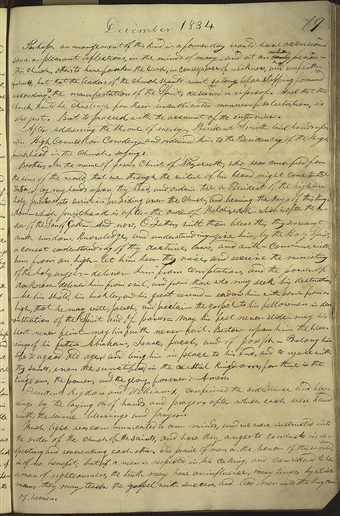 December 1834
19
Perhaps an arrangement of this kind in a former day would have occasioned
some unpleasant reflections, in the minds of many, and at an
the church, others to have forsaken the cause, in consequence of weakness, and unfaith
But that the leaders of the church should wait so long before stepping forward
according to the manifestation of the Spirit, deserves a reproof. And that the
church should be chastened for their uncultivated manner of salutation, is
also just. But to proceed with the account of the interview.
After addressing the throne of mercy, President Smith laid hands upon
High Counsellor Cowdery and ordained him to the Presidency of the
priesthood in the church, saying:
Brother, In the name of Jesus Christ of Nazareth, who was crucified for
the sins of the world, that we through the virtue of his blood might come to the
Father, I lay my hands upon thy head, and ordain thee a President of the high and
holy priesthood, to assist in presiding over the Church, and bearing the keys of this king-
dom—which priesthood is after the order of Melchizedek—which is after the or-
der of the Son of God. And now, O Father, wilt thou bless this thy servant
with wisdom, knowledge, and understanding—give him, by the Holy Spirit,
a correct understanding of thy doctrine, laws, and will—Commune with
him from on high—let him hear thy voice, and receive the ministring
of the holy angels—deliver him from temptation, and the power of
darkness—deliver him from evil, and from those who may seek his destruction,
be his shield, his buckler, and his great reward—endow him with power from on
high, that he may write, preach, and proclaim the gospel to his fellowmen in dem-
onstration of the Spirit and of power—May his feet never slide—may his
heart never faint—may his faith never fail. Bestow upon him the bles-
sings of his fathers Abraham, Isaac, Jacob, and of Joseph—Prolong his
life to a good old age, and bring him in peace to his end, and to rejoice with
thy saints, even the sanctified, in the celestial kingdom; for thine is the
kingdom, the power, and the glory, forever. Amen.
Presidents Rigdon and Williams, confirmed the ordinance and bles-
sings by the laying on of hands and prayer, after which each were blessed
with the same blessings and prayer.
Much light was communicated to our minds, and we were instructed into
the order of the church of the saints, and how they ought to conduct in re-
specting and reverencing each other. The praise of men, or the honor of this world,
is of no benefit; but if a man is respected in his calling, and considered to be
a man of righteousness, the truth may have an influence, many times, by which
means they may teach the gospel with success, and lead men into the kingdom
of heaven.